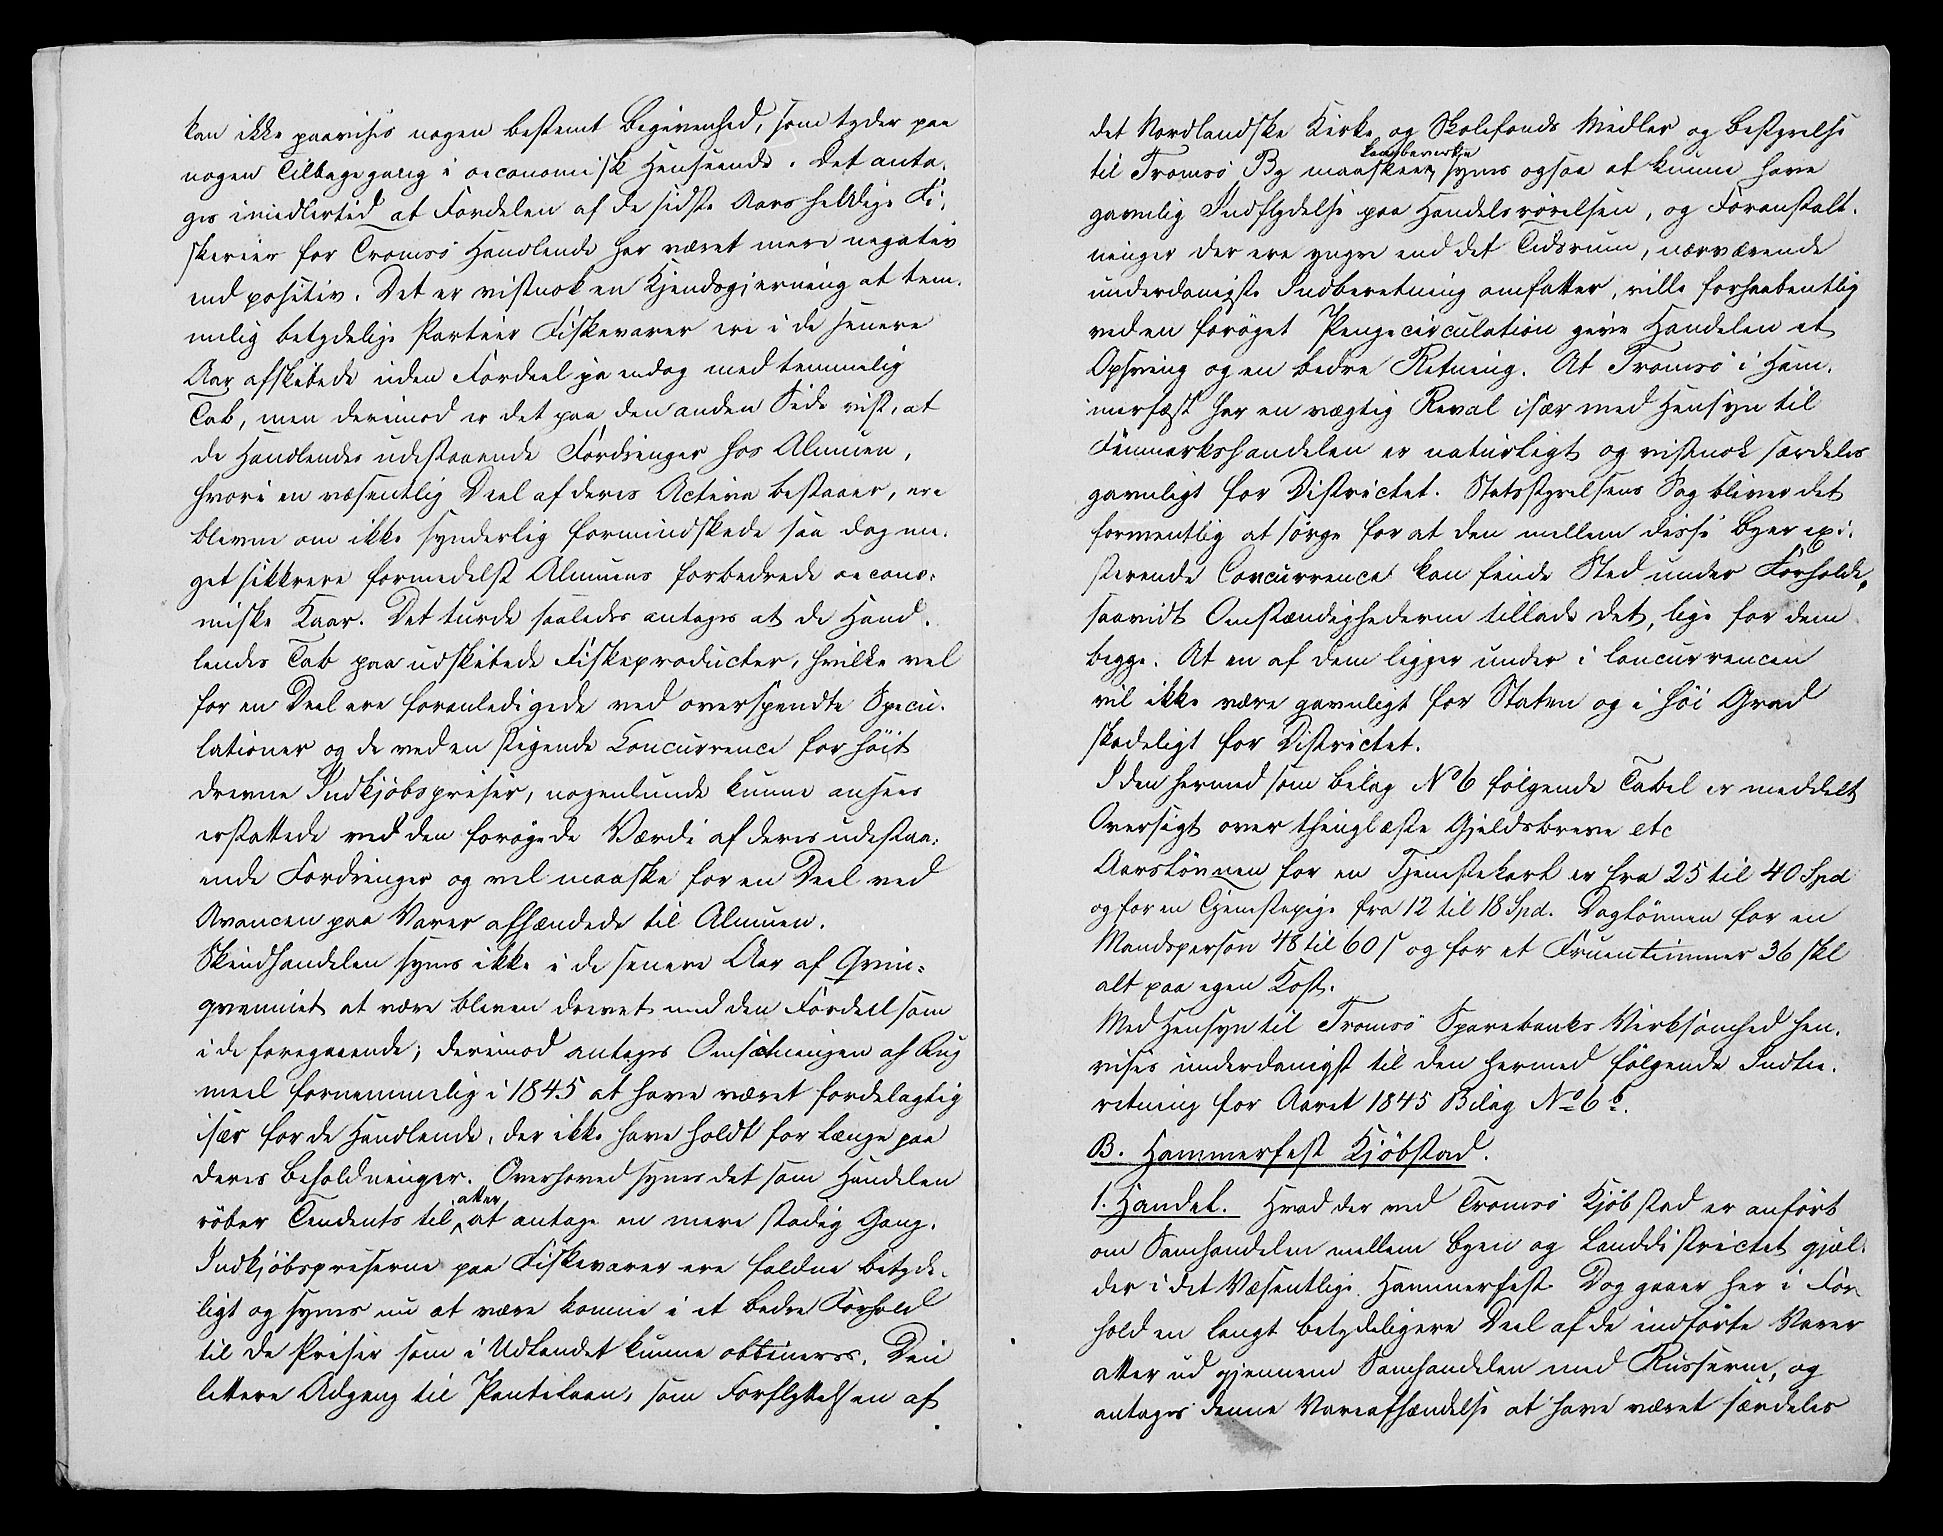 kan ikke paavises nogen bestemt Begivenhed, som tyder paa
nogen Tilbagegang i oeconomisk Henseende. Det anta¬
ges imidlertid at Fordelen af de sidste Aars heldige Fi¬
skerier for Tromsö Handlende har været mere negativ
end positiv. Det er vistnok en Kjendsgjerning at tem¬
melig betydelige Partier Fiskevarer ere i de senere
Aar afskibede uden Fordeel ja endog med temmelig
Tab, men derimod er det paa den anden Side vist, at
de Handlendes udestaaende Fordringer hos Almuen,
hvori en væsentlig Deel af deres Activa bestaaer, ere
blevne om ikke synderlig formindskede saa dog me¬
get sikkrere formedelst Almuens forbedrede oecono¬
miske Kaar. Det turde saaledes antages at de Hand¬
lendes Tab paa udskibede Fiskeproducter, hvilke vel
for en Deel ere foranledigede ved overspendte Specu¬
lationer og de ved en stigende Concurrence for höit
drevne Indkjöbspriser, nogenlunde kunne ansees
erstattede ved den forögede Værdi af deres udestaa¬
ende Fordringer og vel maaske for en Deel ved
Avancen paa Varer afhændede til Almuen.
Skindhandelen synes ikke i de senere Aar af Qvin¬
qvenniet at være bleven drevet med den Fordeel som
i de foregaaende; derimod antages Omsætningen af Rug
meel fornemmelig i 1845 at have været fordelagtig
især for de Handlende, der ikke have holdt for længe paa
deres Beholdninger. Overhoved synes det som Handelen
röber Tendents til atter at antage en mere stadig Gang.
Indkjöbspriserne paa Fiskevarer ere faldne betyde¬
ligt og synes nu at være komne i et bedre Forhold
til de Priser som i Udlandet kunne obtineres. Den
lettere Adgang til Pantelaan, som Forflyttelsen af
det Nordlandske Kirke og Skolefonds Midler og Bestyrelse
til Tromsö By maaskee kan bevirke, synes ogsaa at kunne have
gavnlig Indflydelse paa Handelsrörelsen, og Foranstalt¬
ninger der ere yngre end det Tidsrum, nærværende
underdanigste Indberetning omfatter, ville forhaabentlig
ved en foröget Pengecirculation give Handelen et
Opsving og en bedre Retning. At Tromsö i Ham¬
merfest har en vægtig Rival især med Hensyn til
Finmarkshandelen er naturligt og vistnok særdeles
gavnligt for Districtet. Statsstyrelsens Sag bliver det
formentlig at sörge for at den mellem disse Byer exi¬
sterende Concurrence kan finde Sted under Forholde,
saavidt Omstændighederne tillade det, lige for dem
begge. At en af dem ligger under i Concurrencen
vil ikke være gavnligt for Staten og i höi Grad
skadeligt for Districtet.
I den hermed som Bilag No 6 fölgende Tabel er meddelt
Oversigt over thinglæste Gjeldsbreve etc
Aarslönnen for en Tjenestekarl er fra 25 til 40 Spd
og for en Tjenestepige fra 12 til 18 Spd. Daglönnen for en
Mandsperson 48 til 60 s og for et Fruentimmer 36 skl
alt paa egen Kost.
Med Hensyn til Tromsö Sparebanks Virksomhed hen¬
vises underdanigst til den hermed fölgende Indbe¬
retning for Aaret 1845 Bilag No 6 b.
B. Hammerfest Kjöbstad.
1. Handel. Hvad der ved Tromsö Kjöbstad er anfört
om Samhandelen mellem Byen og Landdistrictet gjæl¬
der i det Væsentlige Hammerfest. Dog gaaer her i For
hold en langt betydeligere Deel af de indförte Varer
atter ud gjennem Samhandelen med Russerne, og
antages denne Vareafhændelse at have været særdeles